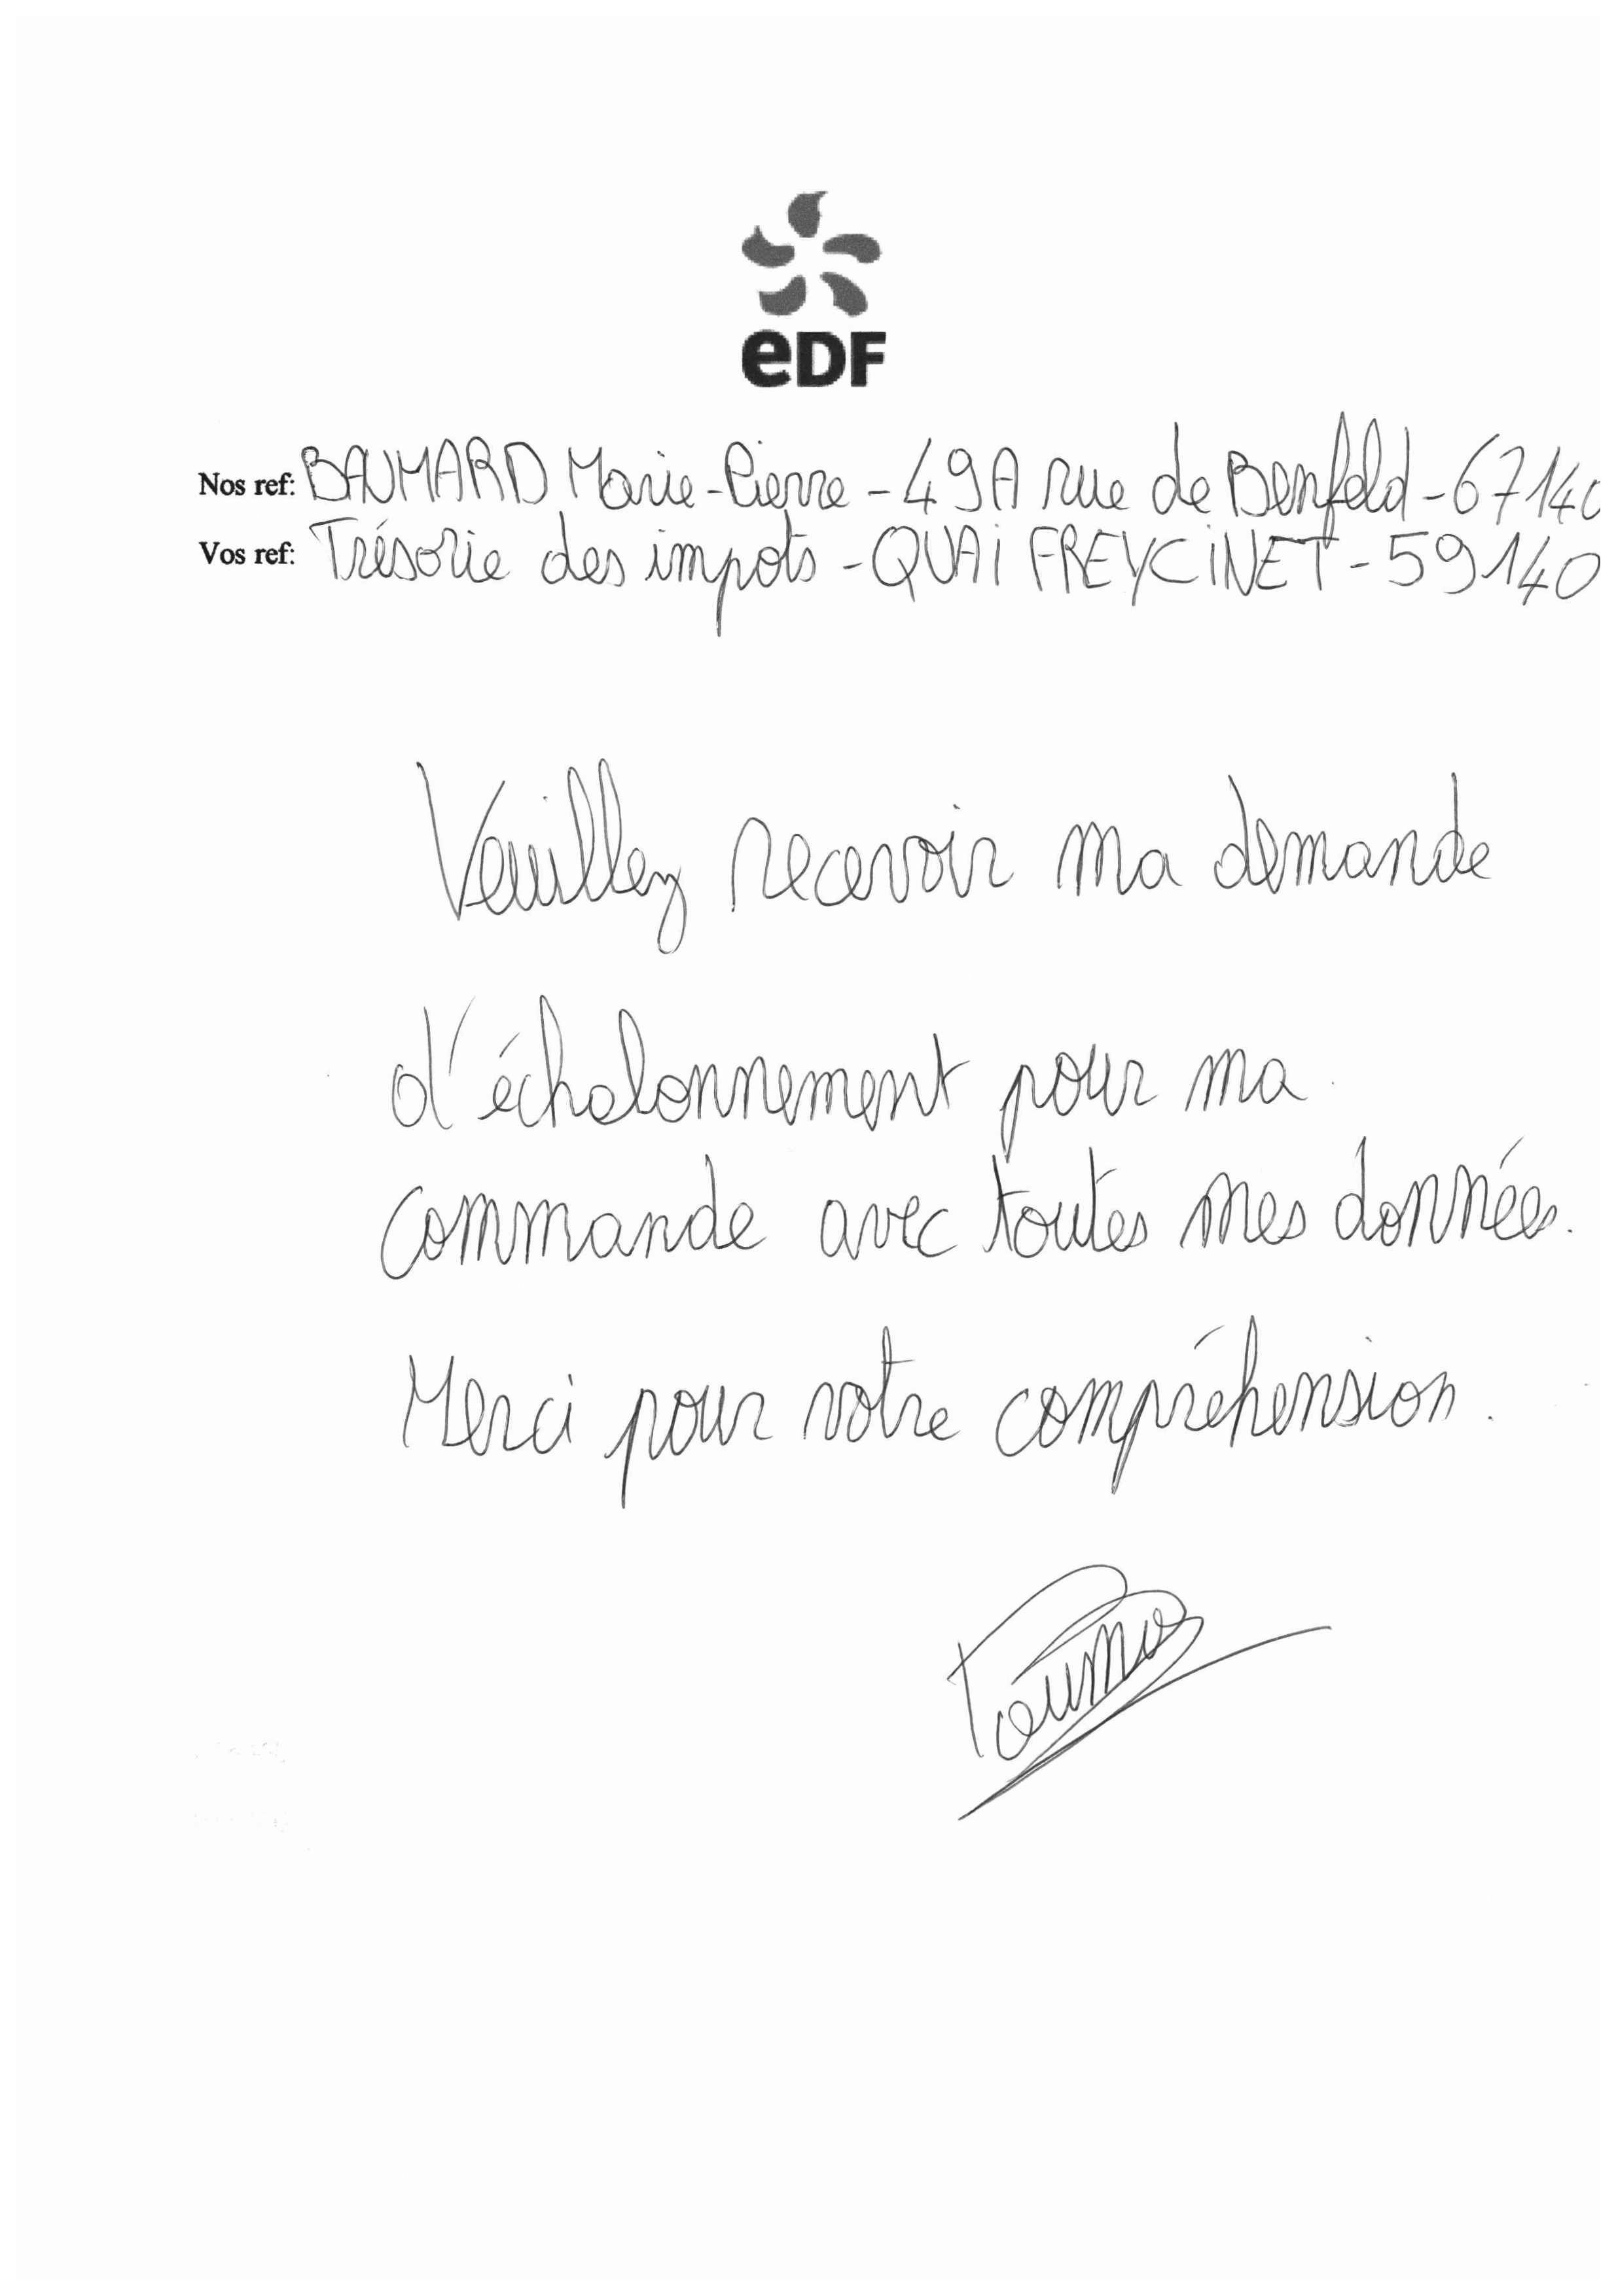 eDF
Nos ref: BAUMARD Marie-Pierre - 49A rue de Benfeld - 67140
Vos ref: Trésorie des impots - QUAI FREYCINET - 59140
Veuillez recevoir ma demande
d'échalonnement pour ma
commande avec toutes mes données.
Merci pour votre compréhension.